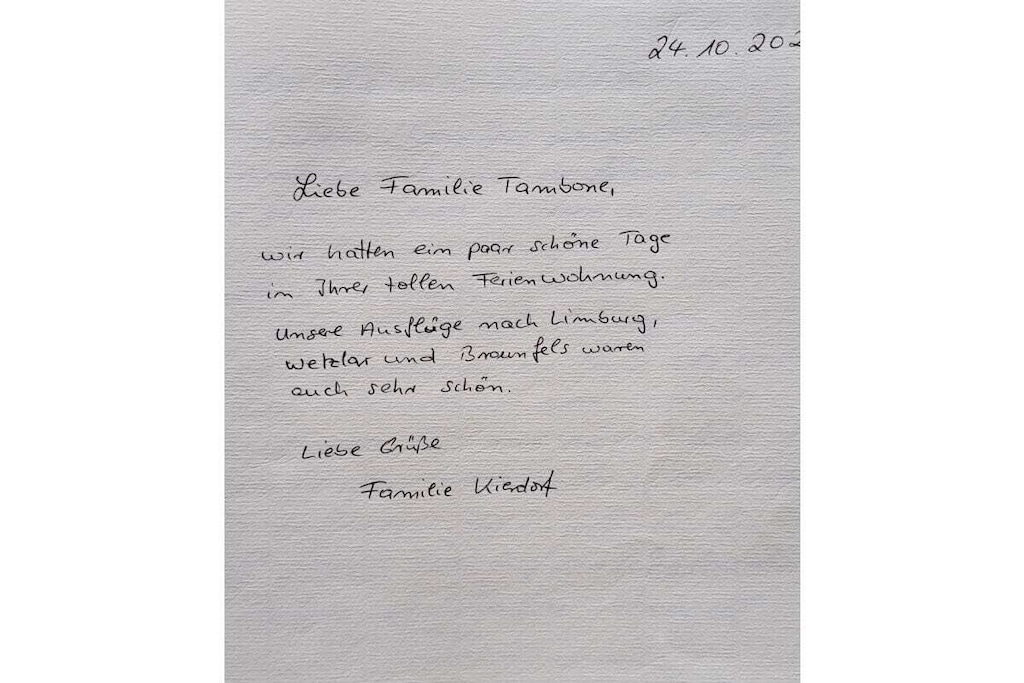 24.10.202
Liebe Familie Tambone,
wir hatten ein paar schöne Tage
in Ihrer tollen Ferienwohnung.
Unsere Ausflüge nach Limburg,
Wetzlar und Braunfels waren
auch sehr schön.
Liebe Grüße
Familie Kierdorf